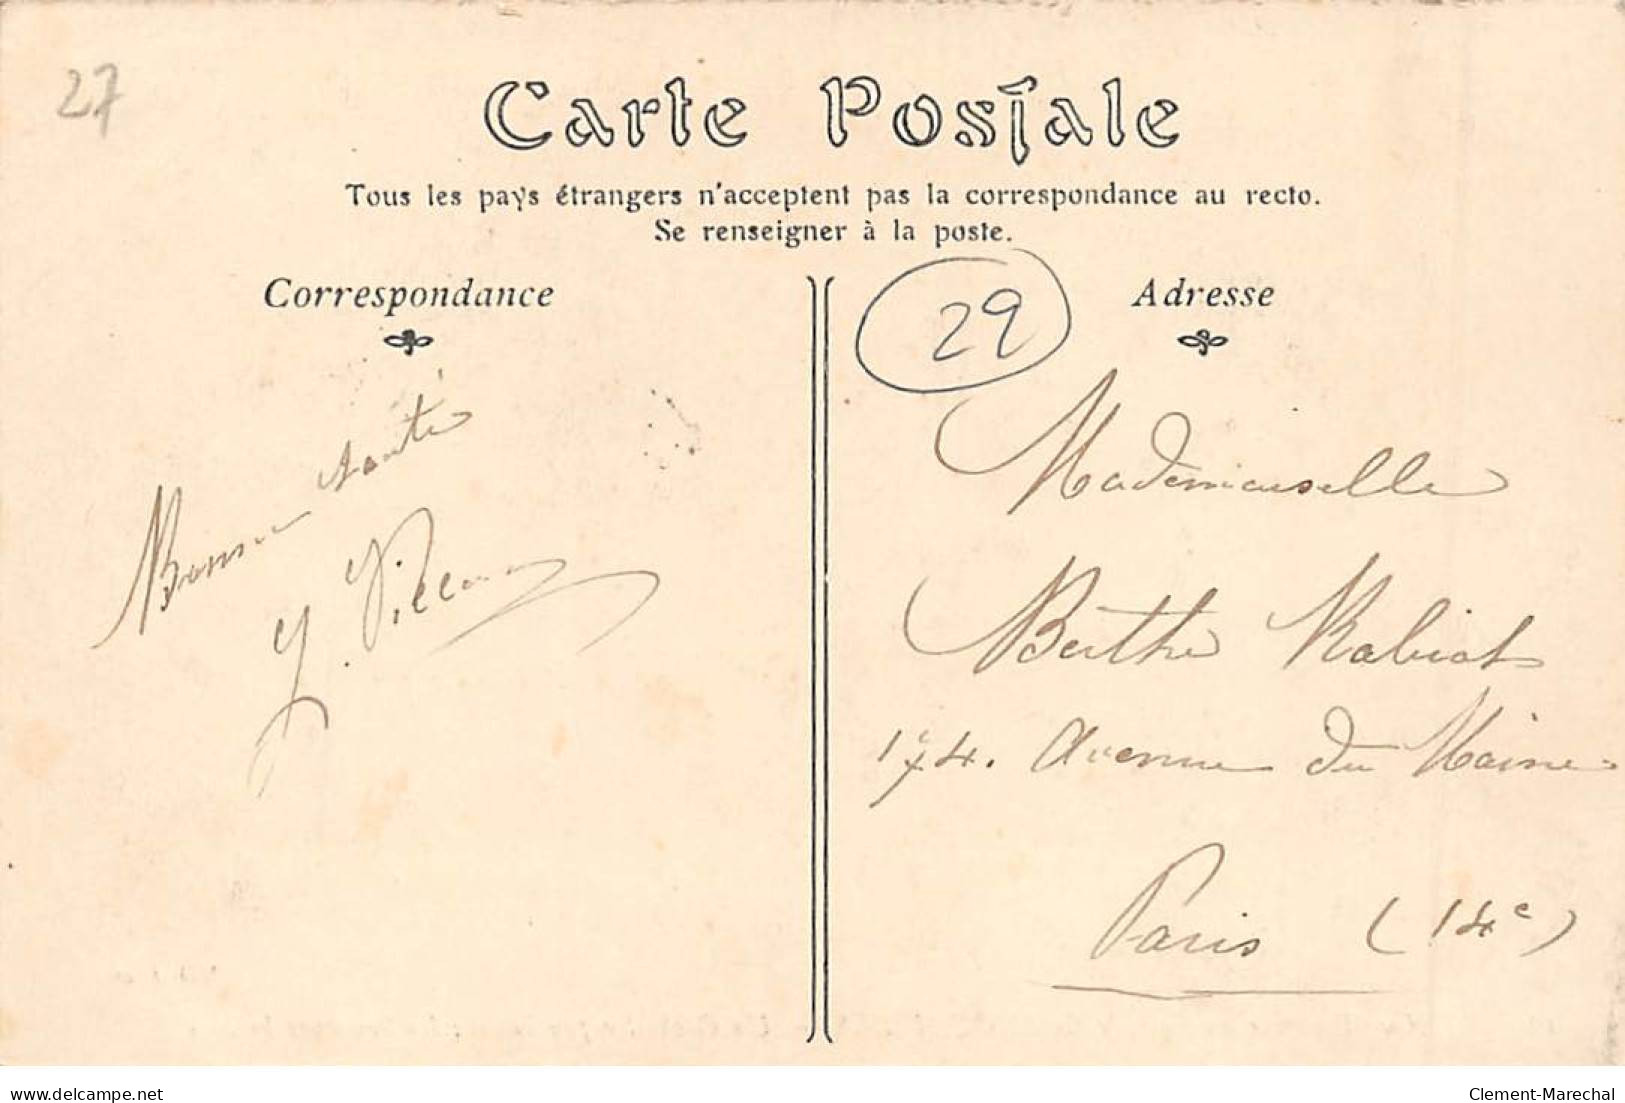 27
Carte Postale
Tous les pays étrangers n'acceptent pas la correspondance au recto.
Se renseigner à la poste.
Correspondance
Adresse
29
Bonne santé
Mademoiselle
Berthe Rabiot
174. Avenue du Maine
Paris (14e)
www.delcampe.net
Clement-Marechal